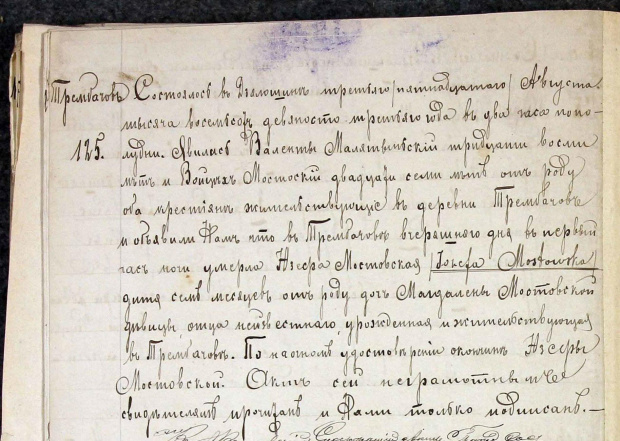 Трембачовъ Состоялось въ Дзялошинѣ третьяго /пятнадцатаго/ Августа
тысяча восемьсотъ девяносто третьяго года въ два часа попо-
125. лудни. Явились Валенты Малятыньскій тридцати восьми
лѣтъ и Войцѣхъ Мостоскій двадцати семи лѣтъ отъ роду
оба крестяне жительствующіе въ деревни Трембачовъ
и объявили Намъ что въ Трембачовѣ вчерашняго дня въ первый
часъ ночи умерла Юзефа Мостовская /Józefa Mostowska
дитя семь месяцевъ отъ роду дочь Магдалены Мостовской
дѣвицы отца неизвестнаго урожденная и жительствующая
въ Трембачовѣ. По настомъ удостовѣреніи окончинѣ Юзефы
Мостовской. Актъ сей неграмотнымъ
свидѣтелямъ прочитанъ и Нами только подписанъ.—